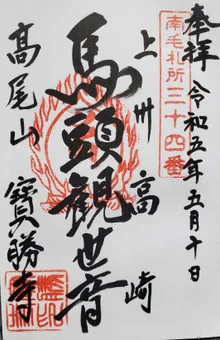 奉拝
令和五年五月十日
南毛札所三十四番
上州高崎
馬頭観世音
高尾山
寳勝寺